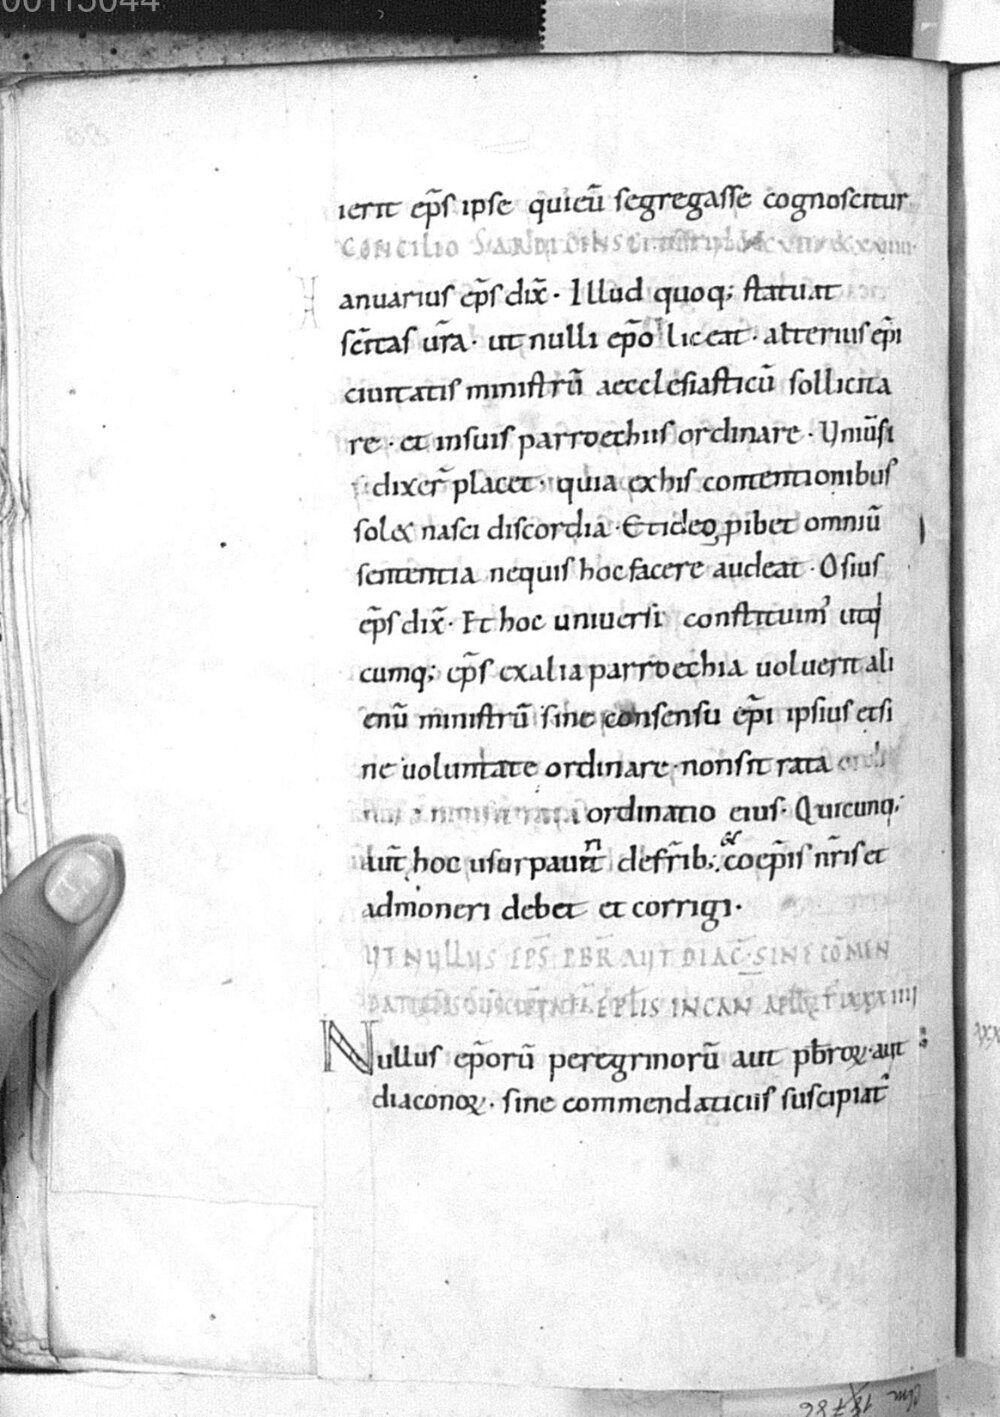 00115044
ierit ep̄s ipse quieū segregasse cognoscitur
CONCILIO SARDICENSE
Ianuarius ep̄s dix̄· Illud quoq; statuat
sc̄itas ur̄a· ut nulli ep̄o liceat· alterius ep̄i
ciuitatis ministrū aecclesiasticū sollicita
re· et insuis parroechiis ordinare· Uniūsi
dixer̄ placet· quia exhis contentionibus
sol& nasci discordia· Et ideo ꝓibet omniū
sententia nequis hoc facere audeat· Osius
ep̄s dix̄· Et hoc uniuersi constituim' utq
cumq; ep̄s exalia parroechia uoluerit ali
enū ministrū sine consensu ep̄i ipsius etsi
ne uoluntate ordinare· non sit rata
ordinatio eius· Quicunq;
aut̄ hoc usurpauer̄t defr̄ib; & coep̄is nr̄is et
admoneri debet et corrigi·
UT NULLUS EP̄S PBR̄ AUT DIAC̄· SINE CŌMEN
EP̄LIS IN CAN
Nullus ep̄orū peregrinorū aut pb̄roꝝ· aut
diaconoꝝ· sine commendaticiis suscipiat'
Clm 18786